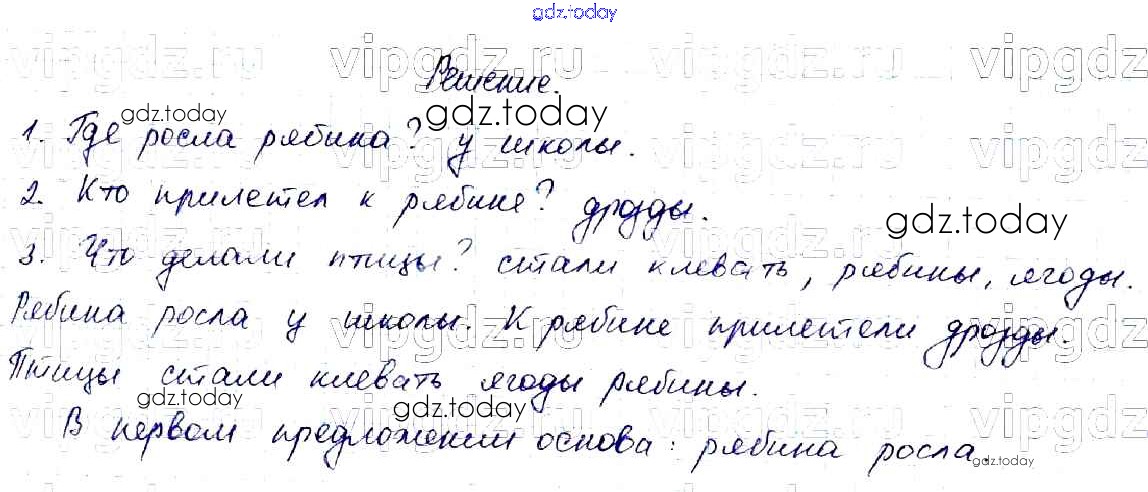 gdz.today
vipgdz.ru vipgdz.ru vipgdz
Решение.
gdz.today gdz.today
1. Где росла рябина? у школы.
2. Кто прилетел к рябине? дрозды.
gdz.today
3. Что делали птицы? стали клевать, рябины, ягоды.
Рябина росла у школы. К рябине прилетели дрозды.
Птицы стали клевать ягоды рябины.
gdz.today gdz.today
В первом предложении основа: рябина росла.
gdz.today